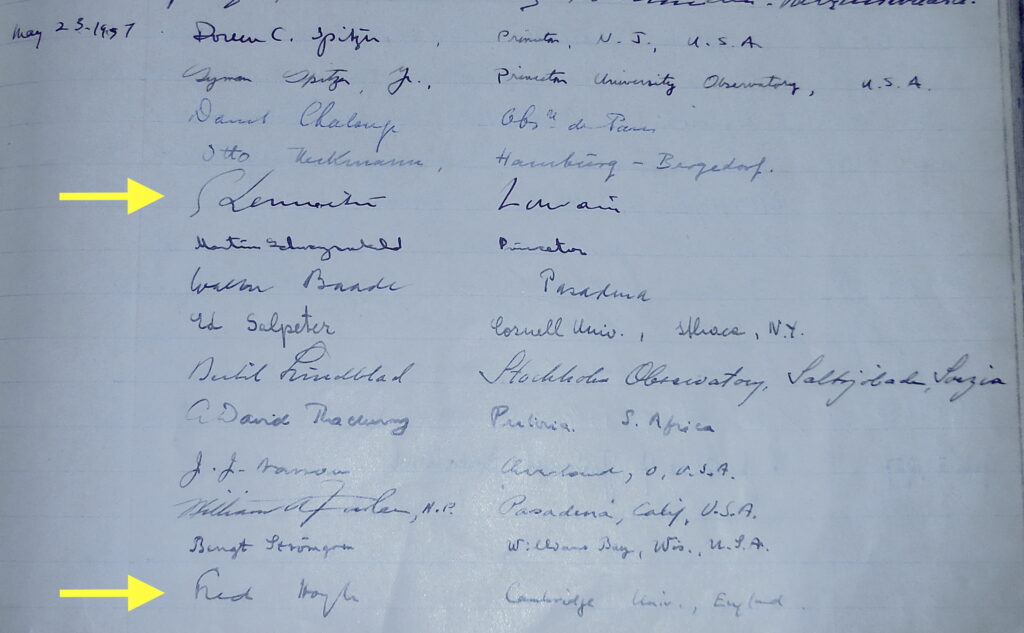 May 23-1957 Doreen C. Spitzer, Princeton, N.J., U.S.A
Lyman Spitzer, Jr., Princeton University Observatory, U.S.A.
Daniel Chalonge Obs.re de Paris
Otto Heckmann, Hamburg - Bergedorf.
G Lemaitre Louvain
Martin Schwarzschild Princeton
Walter Baade Pasadena
Ed Salpeter Cornell Univ., Ithaca, N.Y.
Bertil Lindblad Stockholm Observatory, Saltsjöbaden, Suezia
A. David Thackeray Pretoria. S. Africa
J. J. Nassau Cleveland, O, U.S.A.
William A Fowler, N.P. Pasadena, Calif, U.S.A.
Bengt Strömgren Williams Bay, Wis., U.S.A.
Fred Hoyle Cambridge Univ., England.